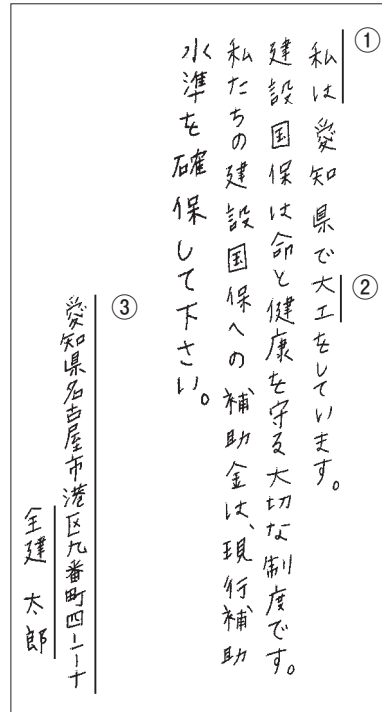 ①
私は愛知県で大工をしています。
②
建設国保は命と健康を守る大切な制度です。
私たちの建設国保への補助金は、現行補助
水準を確保して下さい。
③
愛知県名古屋市港区九番町四ー二ー十
全建 太郎